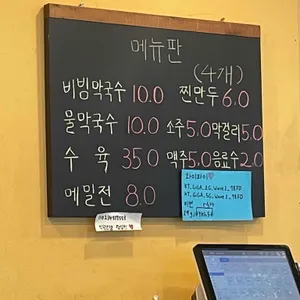 메뉴판
(4개)
비빔막국수 10.0 찐만두 6.0
물막국수 10.0 소주 5.0 막걸리 5.0
수육 35.0 맥주 5.0 음료수 2.0
메밀전 8.0
와이파이♡